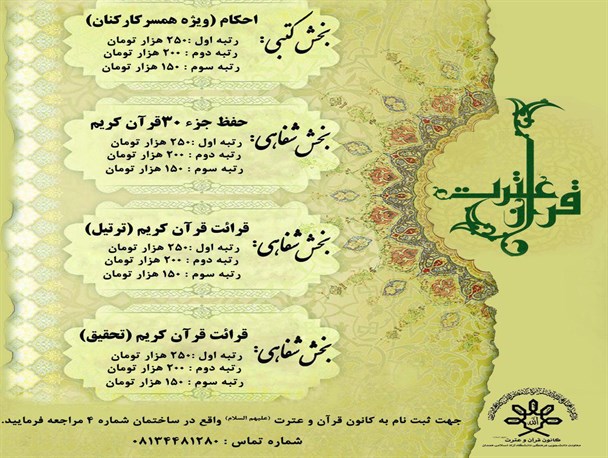 بخش کتبی:
احکام (ویژه همسرکارکنان)
رتبه اول :۲۵۰ هزار تومان
رتبه دوم : ۲۰۰ هزار تومان
رتبه سوم : ۱۵۰ هزار تومان
بخش شفاهی:
حفظ جزء ۳۰قرآن کریم
رتبه اول :۲۵۰ هزار تومان
رتبه دوم : ۲۰۰ هزار تومان
رتبه سوم : ۱۵۰ هزار تومان
قرآن عترت
بخش شفاهی:
قرائت قرآن کریم (ترتیل)
رتبه اول :۲۵۰ هزار تومان
رتبه دوم : ۲۰۰ هزار تومان
رتبه سوم : ۱۵۰ هزار تومان
بخش شفاهی:
قرائت قرآن کریم (تحقیق)
رتبه اول :۲۵۰ هزار تومان
رتبه دوم : ۲۰۰ هزار تومان
رتبه سوم : ۱۵۰ هزار تومان
الله
کانون قرآن و عترت
جهت ثبت نام به کانون قرآن و عترت (علیهم السلام) واقع در ساختمان شماره ۴ مراجعه فرمایید.
شماره تماس : ۰۸۱۳۴۴۸۱۲۸۰